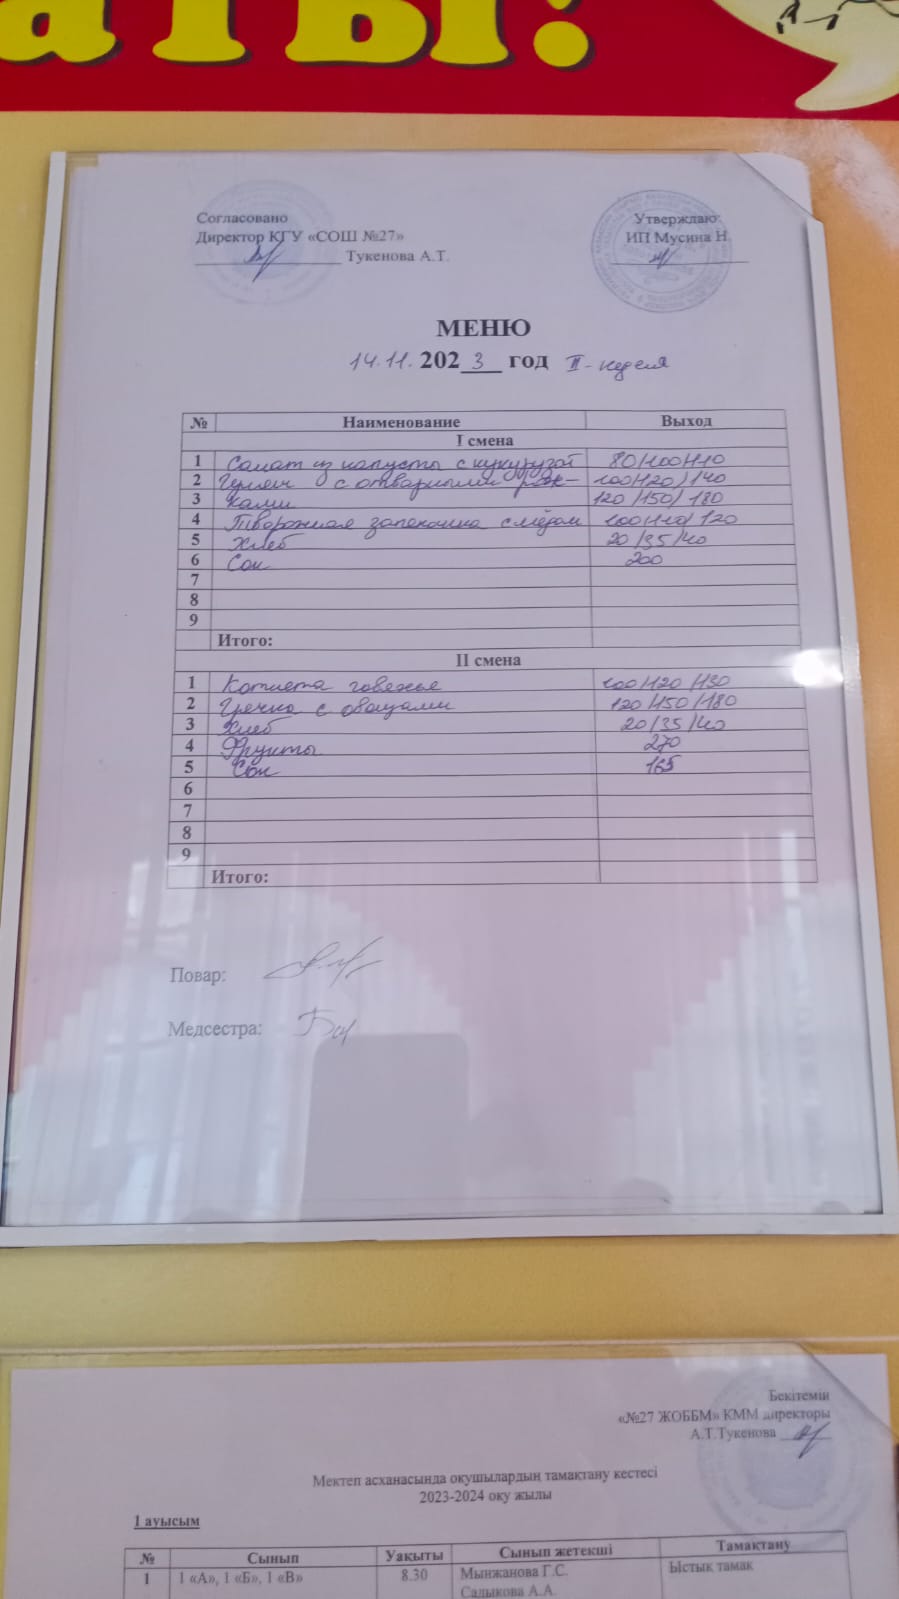 аты!
Согласовано
Директор КГУ «СОШ №27»
Тукенова А.Т.
Утверждаю:
ИП Мусина Н
МЕНЮ
14.11. 2023 год II - неделя
№ Наименование Выход
I смена
1 Салат из капусты с кукурузой 80/100/110
2 Гуляш с отварными рож- 100/120/140
3 ками 120/150/180
4 Творожная запеканка с мёдом 100/110/120
5 Хлеб 20/35/40
6 Сок 200
7
8
9
Итого:
II смена
1 Котлета говяжье 100/120/130
2 Гречка с овощами 120/150/180
3 Хлеб 20/35/40
4 Фрукты 270
5 Сок 165
6
7
8
9
Итого:
Повар:
Медсестра:
Бекітемін
«№27 ЖОББМ» КММ директоры
А.Т.Тукенова
Мектеп асханасында оқушылардың тамақтану кестесі
2023-2024 оқу жылы
1 ауысым
№ Сынып Уақыты Сынып жетекші Тамақтану
1 1 «А», 1 «Б», 1 «В» 8.30 Мынжанова Г.С. Ыстық тамақ
Садыкова А.А.